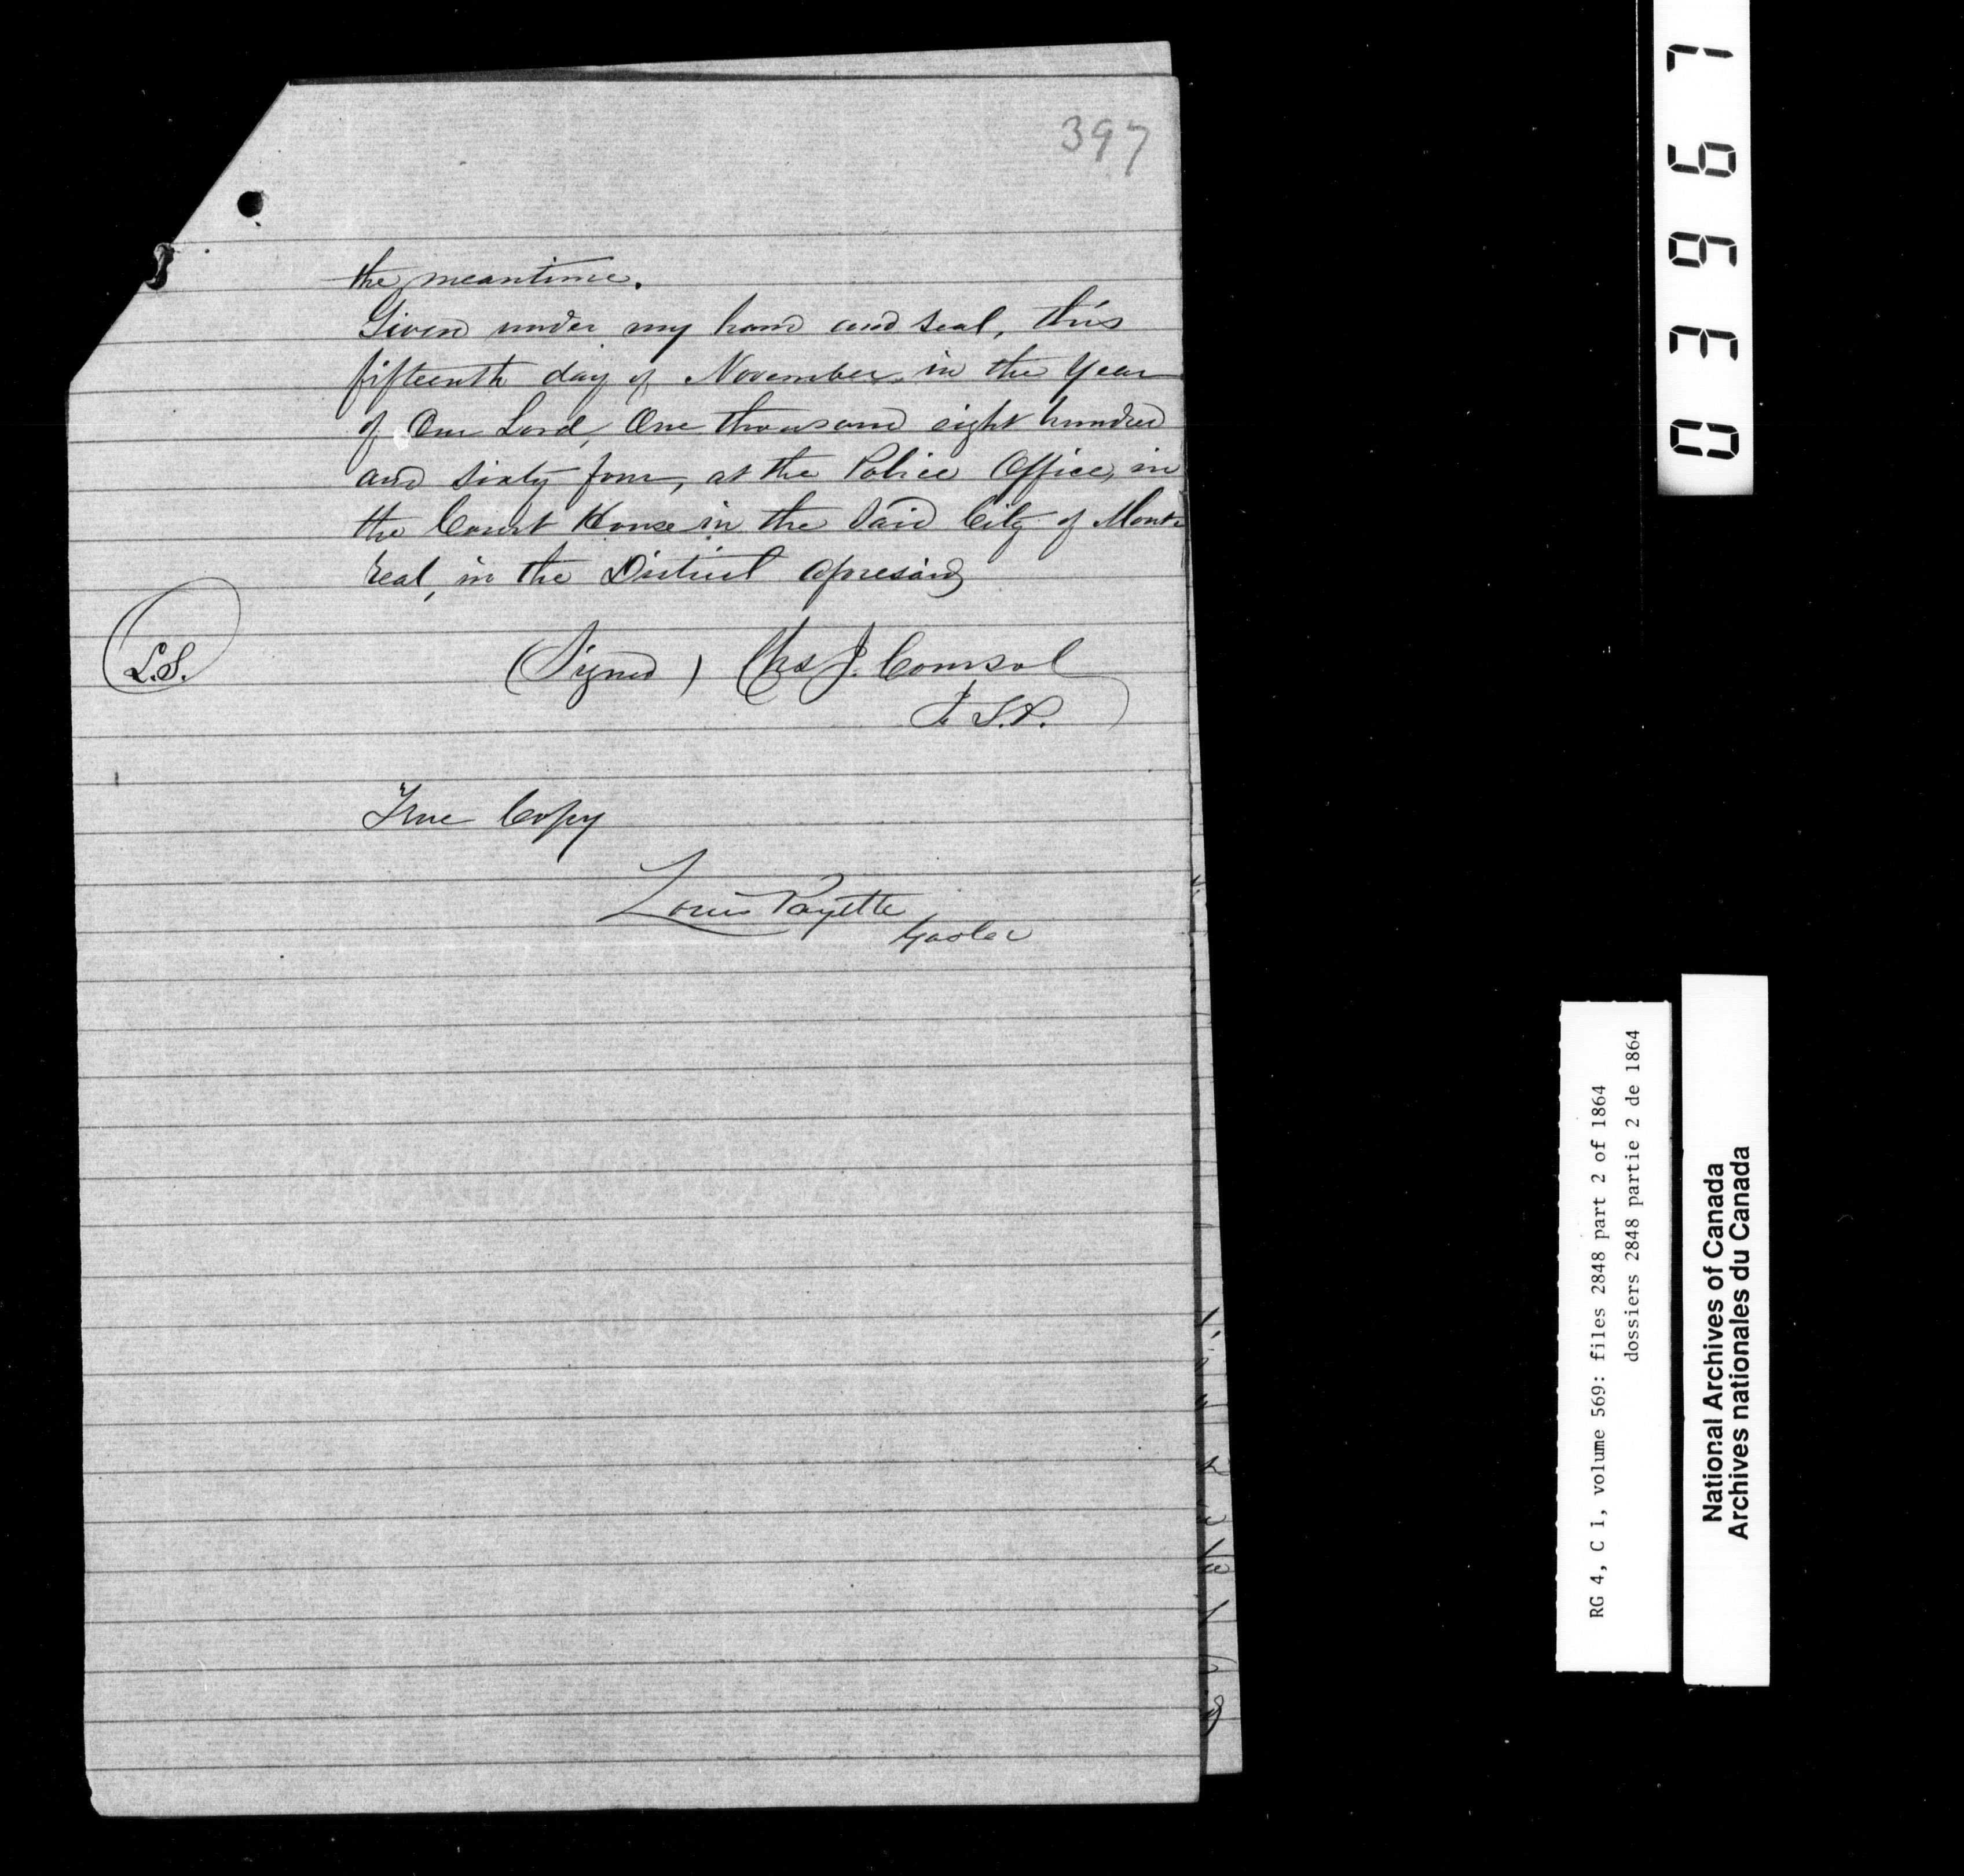 397
the meantime.
Given under my hand and seal, this
fifteenth day of November, in the Year
of Our Lord, One thousand eight hundred
and sixty four, at the Police Office, in
the Court House in the Said City of Mont-
real, in the District aforesaid
L.S.
(Signed) Chs J. Coursol
J. S. P.
True Copy
Louis Payette
Gaoler
03967
RG 4, C 1, volume 569: files 2848 part 2 of 1864
dossiers 2848 partie 2 de 1864
National Archives of Canada
Archives nationales du Canada